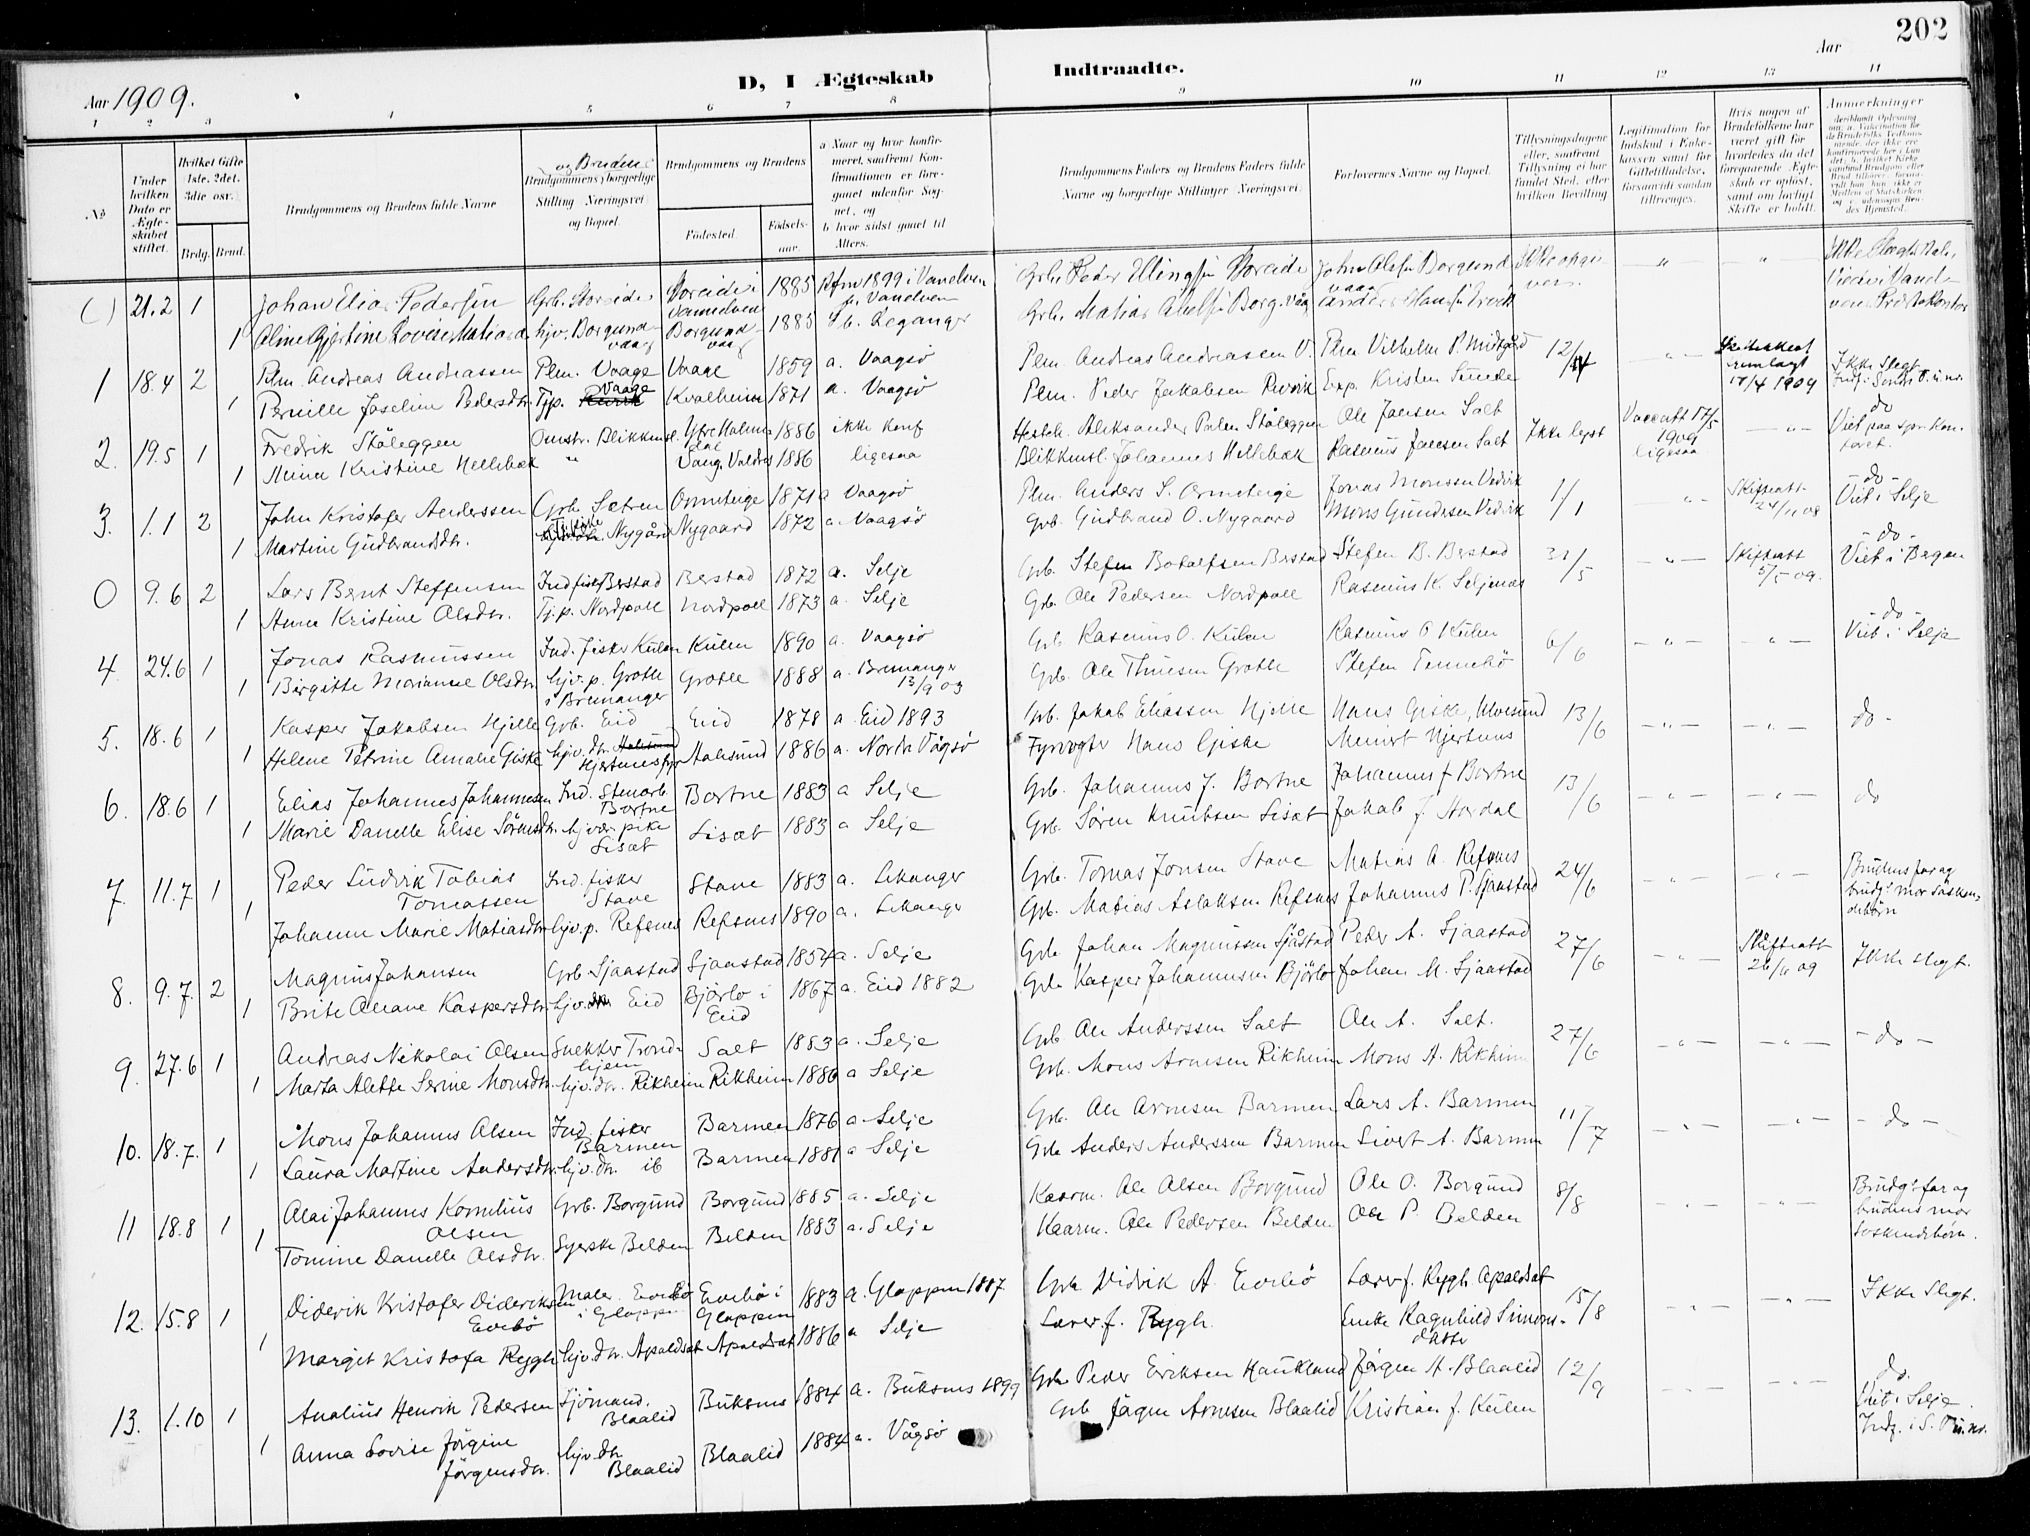 202
Aar 1909.
D, I Ægteskab Indtraadte.
Aar
1 2 3 4 5 6 7 8 9 10 11 12 13 14
No
Under hvilken Dato er Ægteskabet stiftet.
Hvilket Gifte 1ste. 2det. 3die osv.
Brdg. Brud.
Brudgommens og Brudens fulde Navne
og Brudens
Brudgommens borgerlige Stilling (Næringsvei) og Bopæl.
Brudgommens og Brudens
Fødested.
Fødselsaar.
a Naar og hvor konfirmeret, saafremt Konfirmationen er foregaaet udenfor Sognet, og
b hvor sidst gaaet til Alters.
Brudgommens Faders og Brudens Faders fulde Navne og borgerlige Stillinger (Næringsvei.
Forlovernes Navne og Bopæl.
Tillysningsdagene eller, saafremt Tillysning ei har fundet Sted, efter hvilken Bevilling
Legitimation for Indskud i Enkekassen samt for Giftetilladelse, forsaavidt saadan tiltrænges.
Hvis nogen af Brudefolkene har været gift før hvorledes da det foregaaende Ægteskab er opløst, samt om lovligt Skifte er holdt.
Anmerkninger
( ) 21.2 1 Johan Elias Pedersen Grb. Storeide Storeide i Vanelven 1885 Kfm 1899 i Vanelven Grb. Peder Ellingsen Storeide Johan Olsen Borgund
1 Oline Gjertine Lovise Matiasd. hjv. Borgundvaag Borgundvaag 1885 Grb. Matias Borg.våg
1 18.4 2 Plm. Andreas Andreassen Plm. Vaage Vaage 1859 a. Vaagsö Plm. Andreas Andreassen V. Plm Vilhelm P. Midtgård 12/4
1 Pernille Joseline Pedersdtr. Tjp. Vaage Kvalheim 1871 a. Vaagsö Plm. Peder Jakobsen Revik Exp. Kristen Sunde 1909 Ikke Slegt
2. 19.5 1 Fredrik Stöleggen Omstr. Blikkensl. Ytre Holmedal 1886 ikke konf Aleksander Palm Stöleggen Ole Jansen Salt Ikke lyst 17/5 1909 do
1 Mina Kristine Hellebæk " Vang. Valdres 1886 ligesaa Blikkensl. Johannes Hellebæk Rasmus Jansen Salt ligesaa Viet paa spr.kontoret.
3. 1.1 2 John Kristofer Anderssen Grb. Sætren Ormteige 1871 a Vaagsö Plm. Anders S. Ormteige Jonas Monsen Vedvik 1/1 Skifteatt 24/11 08 - do - Viet i Selje
1 Martine Gudbrandsdtr. Nygård Nygaard 1872 a. Vaagsö Grb. Gudbrand O. Nygaard Mons Gundersen Vedvik
0 9.6 2 Lars Bernt Steffensen Ind fisk Berstad Berstad 1872 a. Selje Grb. Stefen Botolfsen Berstad Stefen B. Berstad 31/5 Skifteatt 5/5 09. - do - Viet i Bergen
1 Anne Kristine Olsdtr. Tj.p. Nordpoll Nordpoll 1873 a. Selje Grb. Ole Pedersen Nordpoll Rasmus K. Seljenæs
4 24.6 1 Jonas Rasmussen Ind. fisker Kulen Kulen 1890 a. Vaagsö Grb. Rasmus O. Kulen Rasmus O Kulen 6/6 - do Viet i Selje
1 Birgitte Marianne Olsdtr hjv. p. Grotle i Bremanger Grotle 1888 a. Bremanger 13/9 03 Grb. Ole Thuesen Grotle Stefen Tennebö
5. 18.6 1 Kasper Jakobsen Hjelle Grb. Eid Eid 1878 a. Eid 1893 Grb. Jakob Eliassen Hjelle Hans Giske, Ulvesund 13/6 do -
1 Helene Petrine Amalie Giske hjv. dtr. Hjertenes fyr Aalesund 1886 a. Nordr Vågsö Fyrvogter Hans Giske Meinert Hjertenes
6. 18.6 1 Elias Johannes Johannesen Ind. Stenarb. Bortne Bortne 1883 a Selje Grb. Johannes J. Bortne Johannes J Bortne 13/6 do
1 Marie Danelle Elise Sörensdtr. hjvær. pike Lisæt Lisæt 1883 a Selje Grb. Søren Knutsen Lisæt Jakob J. Nordal
7. 11.7 1 Peder Ludvik Tobias Tomassen Ind. fisker Stave Stave 1883 a. Lekanger Grb. Tomas Jonsen Stave Matias A. Refsnes 24/6 Brudens far og brudg.s mor söskendebörn
1 Johanne Marie Matiasdtr hjv.p. Refsnes Refsnes 1890 a. Lekanger Grb. Matias Aslaksen Refsnes Johannes P. Sjaastad
8. 9.7. 2 Magnus Johansen Grb Sjaastad Sjaastad 1854 a. Selje Grb Johan Magnussen Sjåstad Peder A. Sjaastad 27/6 Skifteatt 26/6 09 Ikke slegt.
1 Brite Oliane Kaspersdtr. hjv. Eid Björlo i Eid 1867 a. Eid 1882 Grb Kasper Johannesen Björlo Johan M. Sjaastad
9. 27.6 1 Andreas Nikolai Olsen Snekker Trondhjem Salt 1883 a. Selje Grb. Ole Anderssen Salt Ole A. Salt. 27/6 - do -
1 Marta Alette Serine Monsdtr. hjv. dtr. Rikheim Rikheim 1886 a Selje Grb. Mons Arnesen Rikheim Mons A. Rikheim
10. 18.7. 1 Mons Johannes Olsen Ind. fisker Barmen Barmen 1876 a. Selje Grb. Ole Arnesen Barmen Lars A. Barmen 11/7 - do -
1 Laura Martine Andersdtr. hjv. dtr. ib Barmen 1881 a Selje Grb Anders Anderssen Barmen Sivert A. Barmen
11 18.8 1 Olai Johannes Kornelius Olsen Grb. Borgund Borgund 1885 a. Selje Kaarm. Ole Olsen Borgund Ole O. Borgund 8/8 Brudg.s far og brudens mor söskendebörn.
1 Tomine Danelle Olsdtr. Syerske Belden Belden 1883 a. Selje Kaarm. Ole Pedersen Belden Ole P. Belden
12. 15.8 1 Diderik Kristofer Dideriksen Evebö Maler Evebö i Gloppen Evebö i Gloppen 1883 a. Gloppen 1887 Grb Didrik A. Evebö Lærer f. Rygh Apaldsæt 15/8 Ikke slegt.
1 Margit Kristofa Rygh hjv. dtr. Apaldsæt Apaldsæt 1886 a Selje Lærer f. Rygh. Enke Ragnhild Simonsdatter
13. 1.10 1 Analius Henrik Pedersen Sjömand. Blaalid Buksnes 1884 a. Buksnes 1899 Grb Peder Eriksen Haukland Jörgen A. Blaalid 12/9 do. Viet i Selje.
1 Anna Lovise Jörgine Jörgensdtr. hjv. dtr Blaalid Blaalid 1884 a. Vågsö Grb Jörgen Arnesen Blaalid Kristian J. Kulen